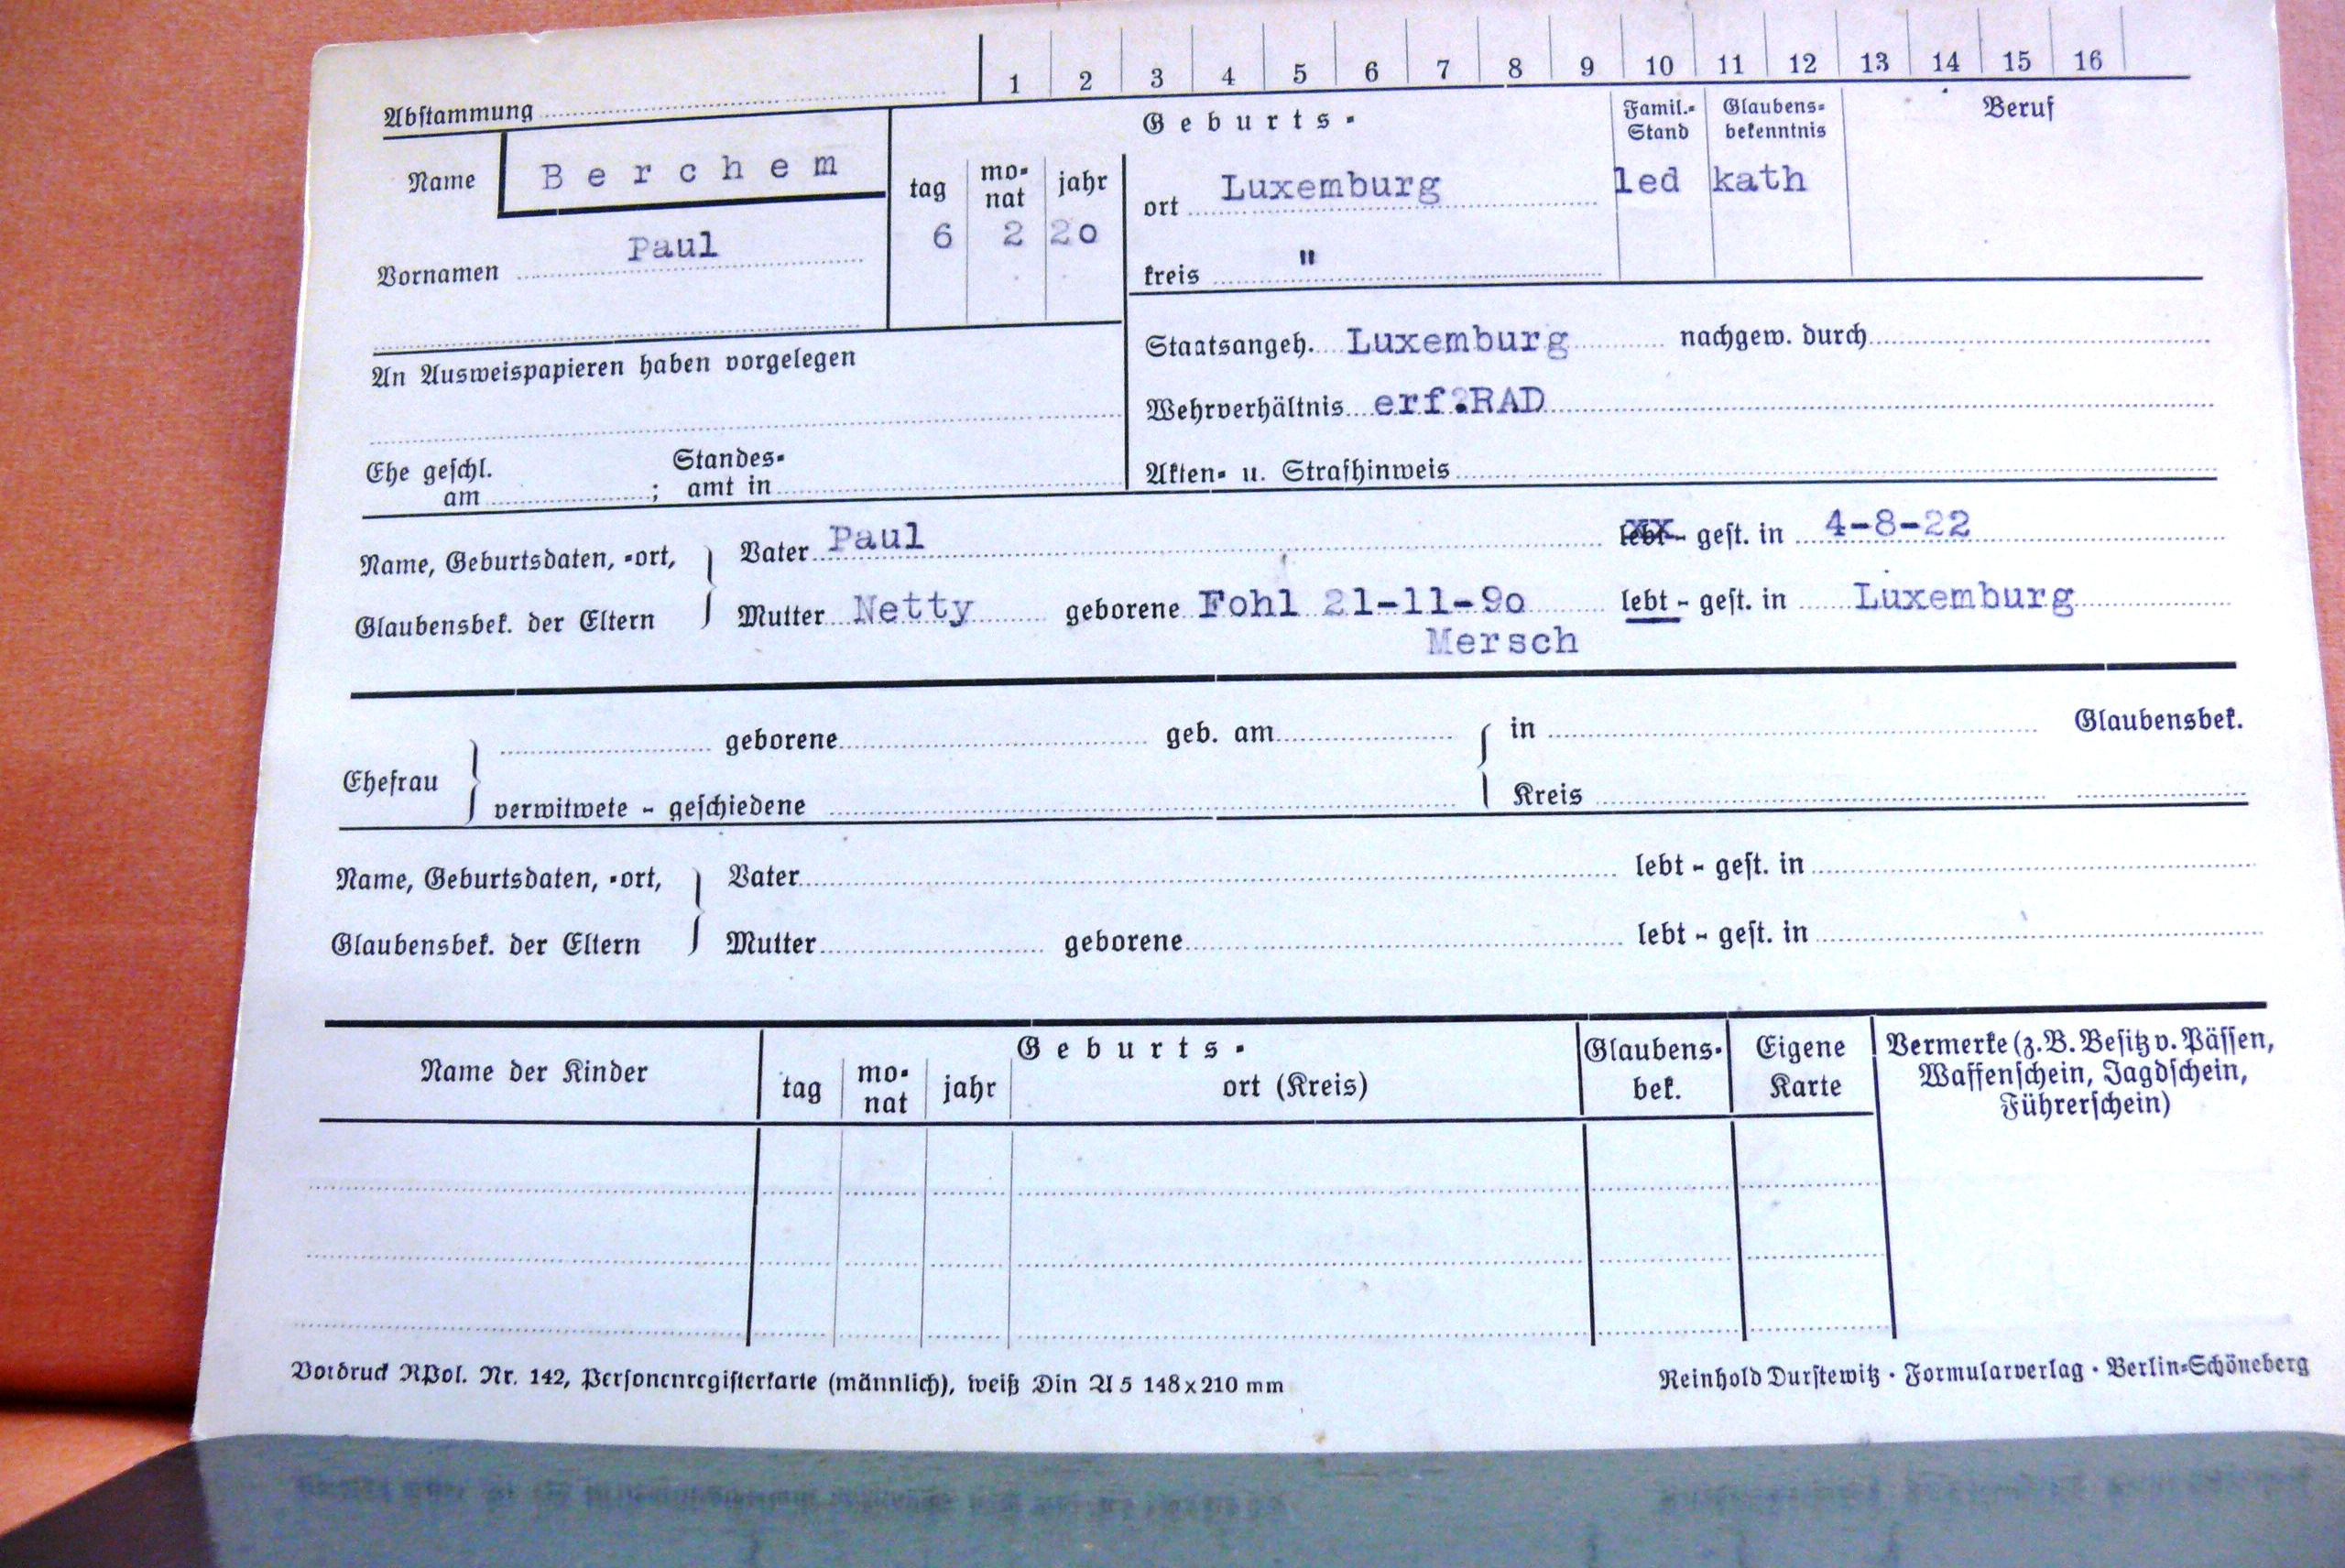 1 2 3 4 5 6 7 8 9 10 11 12 13 14 15 16
Abstammung
Name Berchem
Vornamen Paul
tag monat jahr
6 2 20
Geburts-
ort Luxemburg
kreis "
Famil.-Stand
led
Glaubensbekenntnis
kath
Beruf
An Ausweispapieren haben vorgelegen
Staatsangeh. Luxemburg nachgew. durch
Wehrverhältnis erf.RAD
Akten- u. Strafhinweis
Ehe geschl. am ; Standesamt in
Name, Geburtsdaten, -ort,
Glaubensbek. der Eltern
Vater Paul lebt - gest. in 4-8-22
Mutter Netty geborene Fohl 21-11-90 lebt - gest. in Luxemburg
Mersch
Ehefrau
geborene geb. am in Glaubensbek.
verwitwete - geschiedene Kreis
Name, Geburtsdaten, -ort,
Glaubensbek. der Eltern
Vater lebt - gest. in
Mutter geborene lebt - gest. in
Name der Kinder
Geburts-
tag monat jahr ort (Kreis)
Glaubens-
bek.
Eigene
Karte
Vermerke (z. B. Besitz v. Pässen,
Waffenschein, Jagdschein,
Führerschein)
Vordruck RPol. Nr. 142, Personenregisterkarte (männlich), weiß Din A 5 148x210 mm
Reinhold Durstewitz · Formularverlag · Berlin-Schöneberg